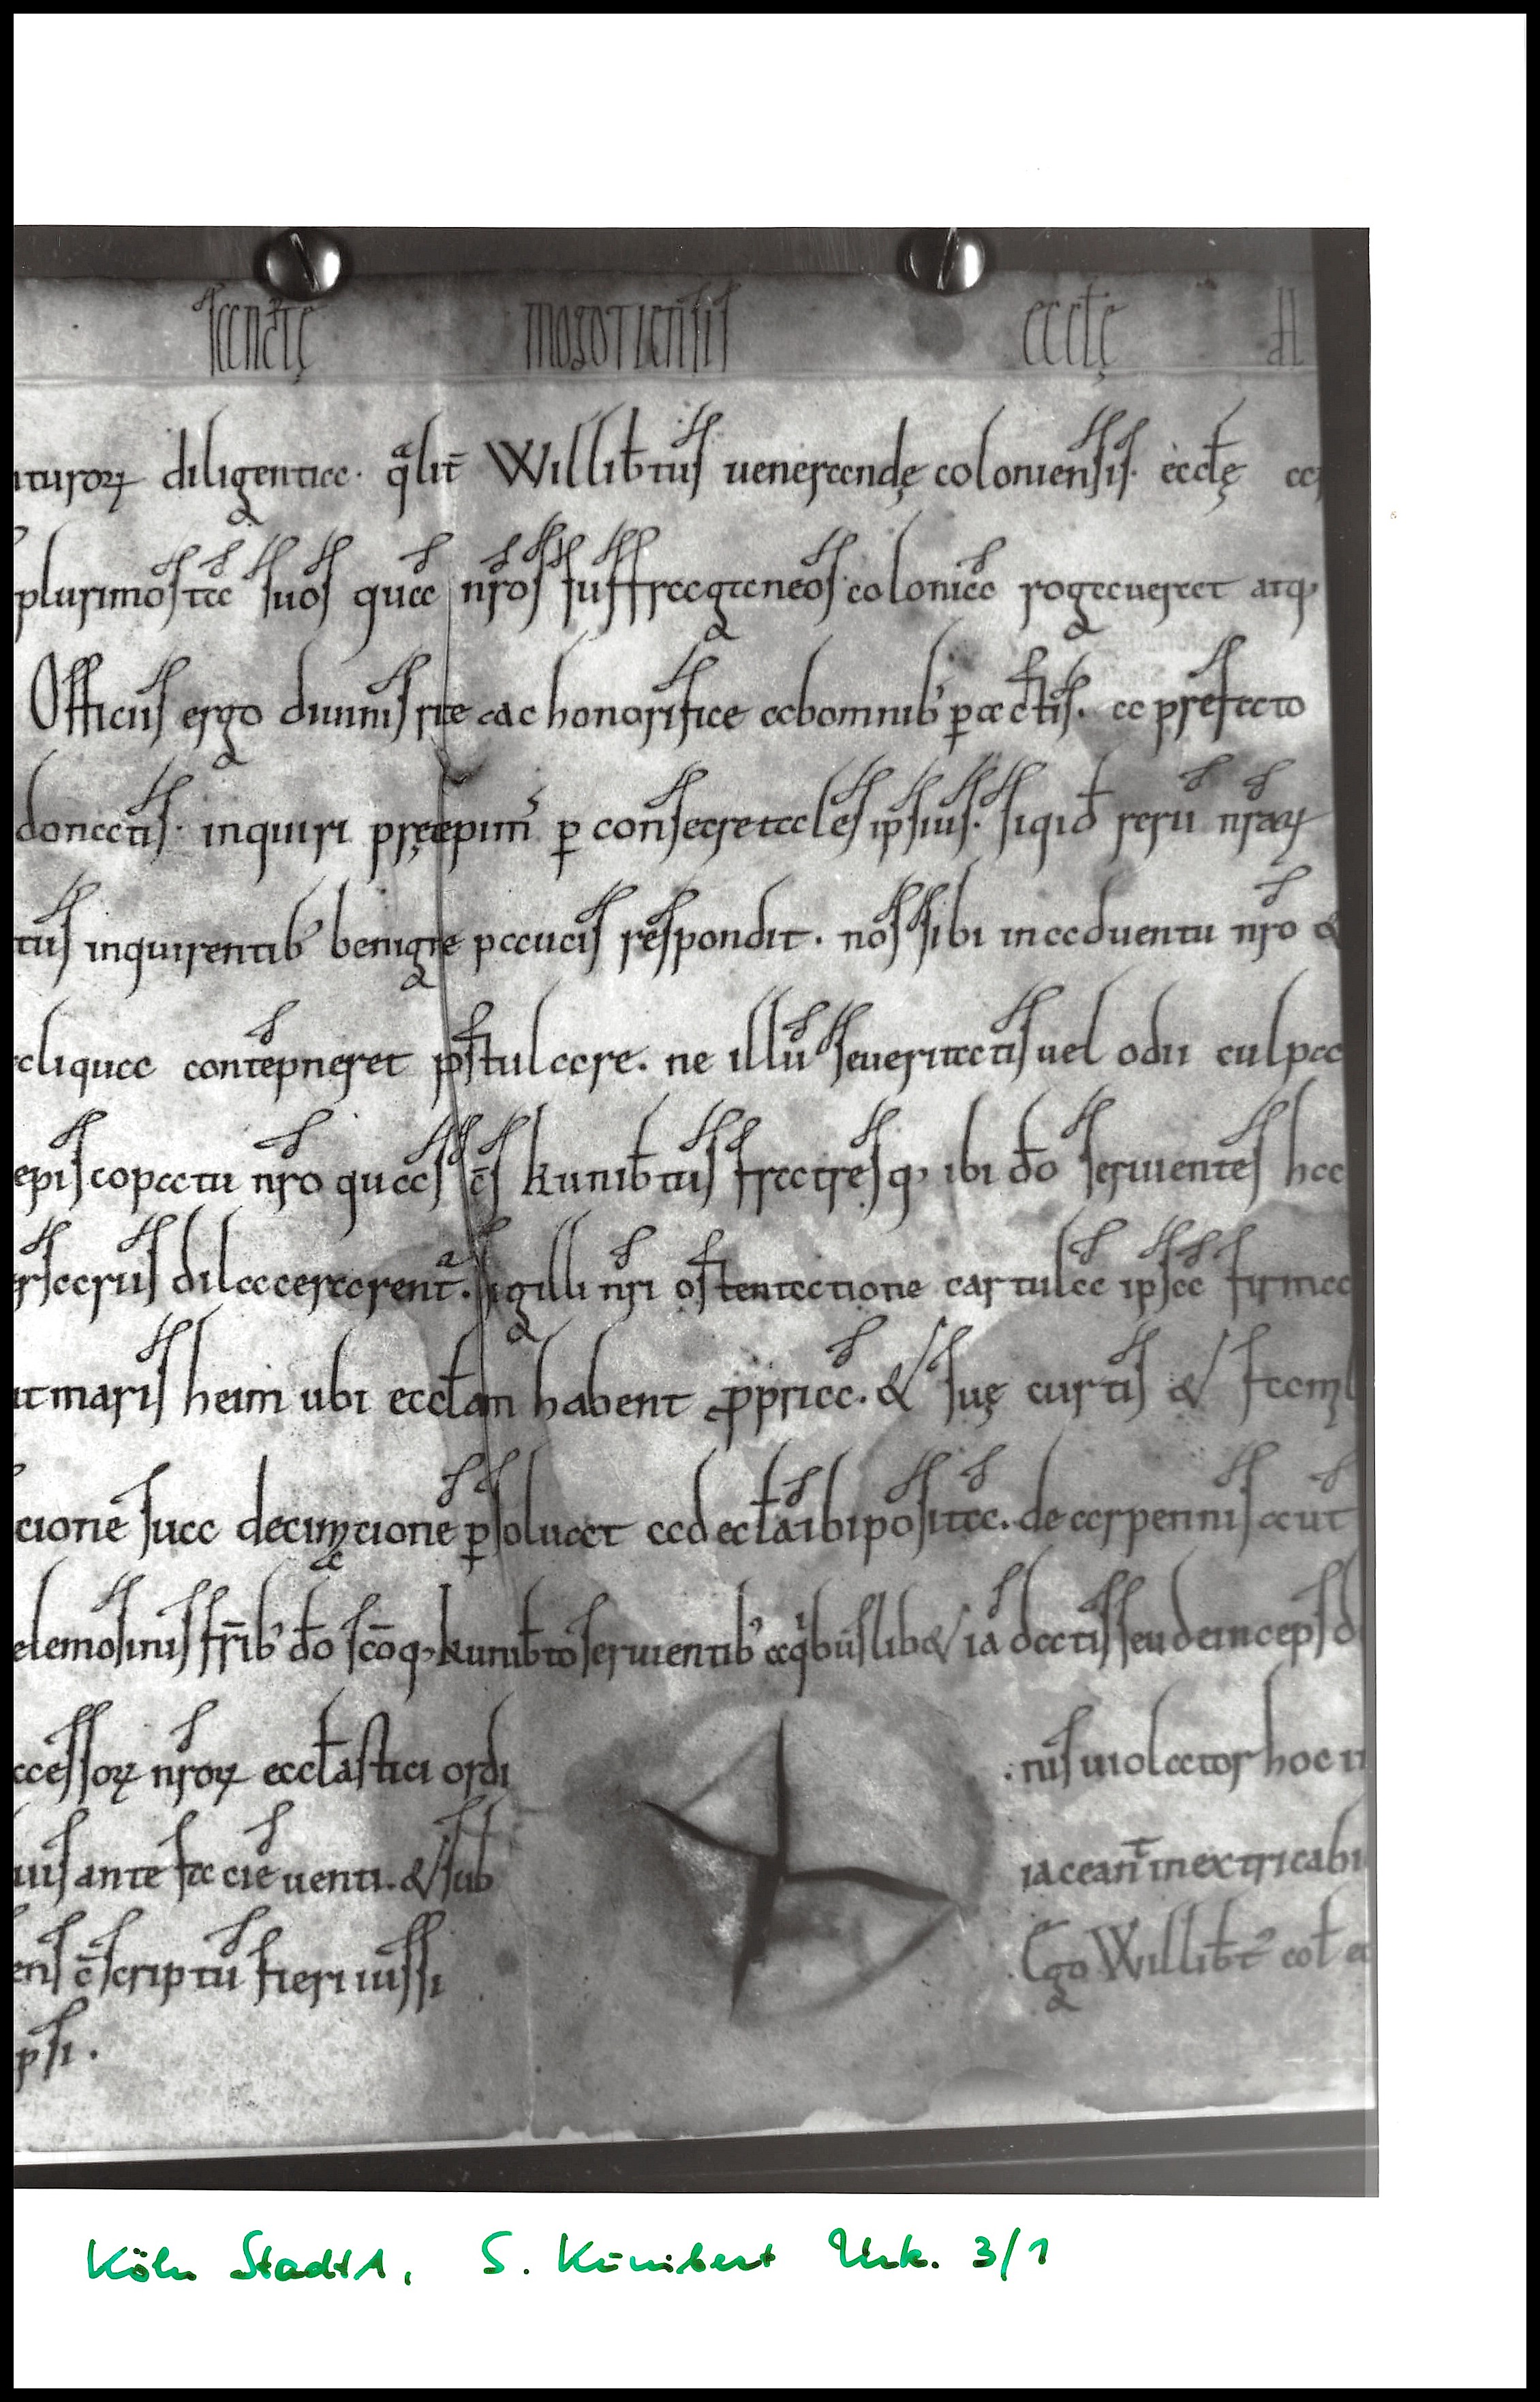 sanctę mogotiensis ecclę
turorꝝ diligentia. qͣlit̄ Willib̄tus uenerandę coloniensis. ecclę
plurimos tā suos quā nr̄os suffraganeos coloniā rogauerat atq;
Officiis ergo diuinis rite ac honorifice ab omnib' ꝑactis. a prefato
donatis. inquiri pręcepim' ꝑ consecretales ipsius. siqid rerū nr̄aꝝ
tus inquirentib' benigne paucis respondit. nos sibi in aduentu nr̄o &
aliqua contēpneret pstulare. ne illū seueritatis uel odii culpa
episcopatu nr̄o quā s̄c̄s kunib̄tus fratresq; ibi dō seruientes
ersariis dilacerarent. sigilli nr̄i ostentatione cartulā ipsā firma
tmaris heim ubi eccl̄am habent ꝓpria. & suę curtis &
cionē sua decimacionē ꝑsoluat ad eccl̄ā ibi positā. de arpennis aūt
elemosinis fr̄ib' dō scōq; kunib̄to seruientib' aqͥbuslib& iā datis seu deinceps d
ccessoꝝ nr̄oꝝ eccl̄astici ordi
.nis uiolator hoc
uis ante faciē uenti. & sub
iaceant̄ inextricabi
ens c̄scriptū fieri iussi
Ego Willib̄t' col̄
psi.
Köln StadtA, S. Kunibert Urk. 3/1